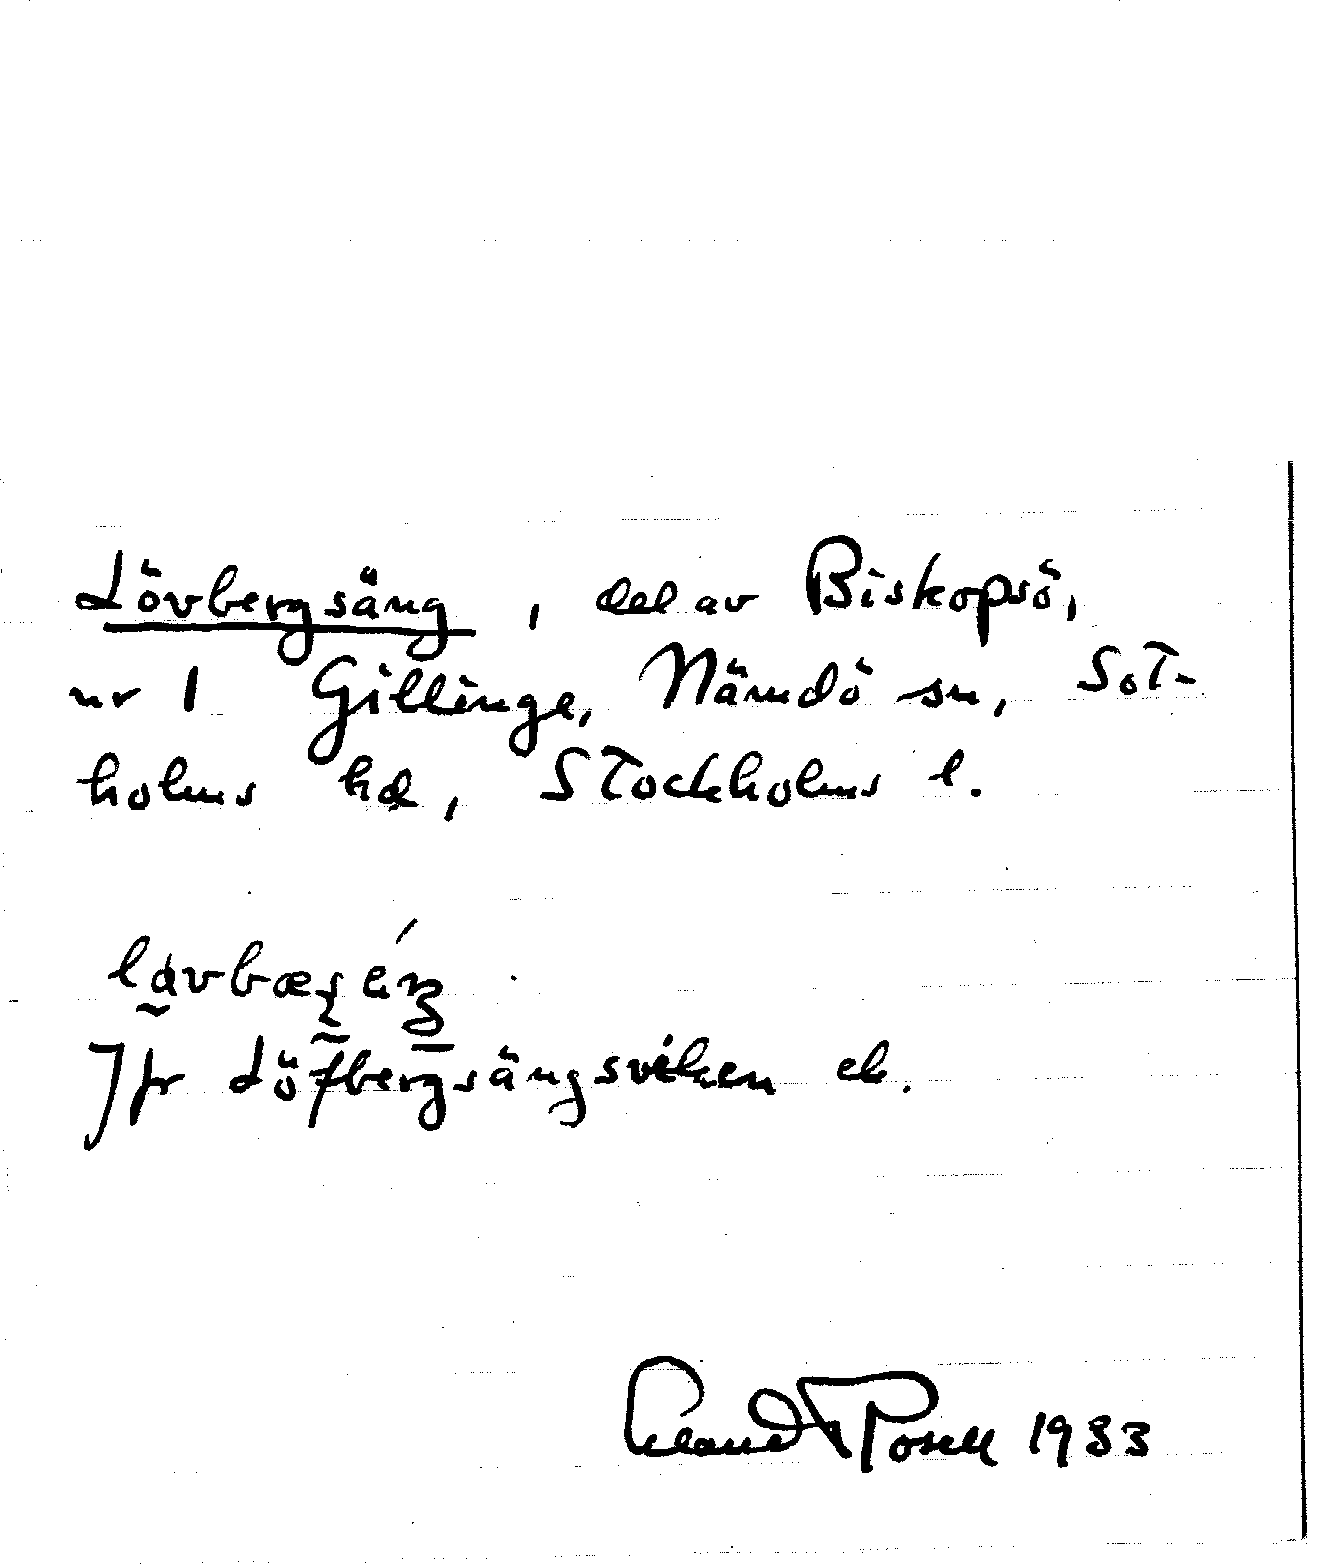 Lövbergsäng, del av Biskopsö,
nr 1 Gillinge, Nämdö sn, Sot-
holms hd, Stockholms l.
Jfr Löfbergsängsviken ek.
1933